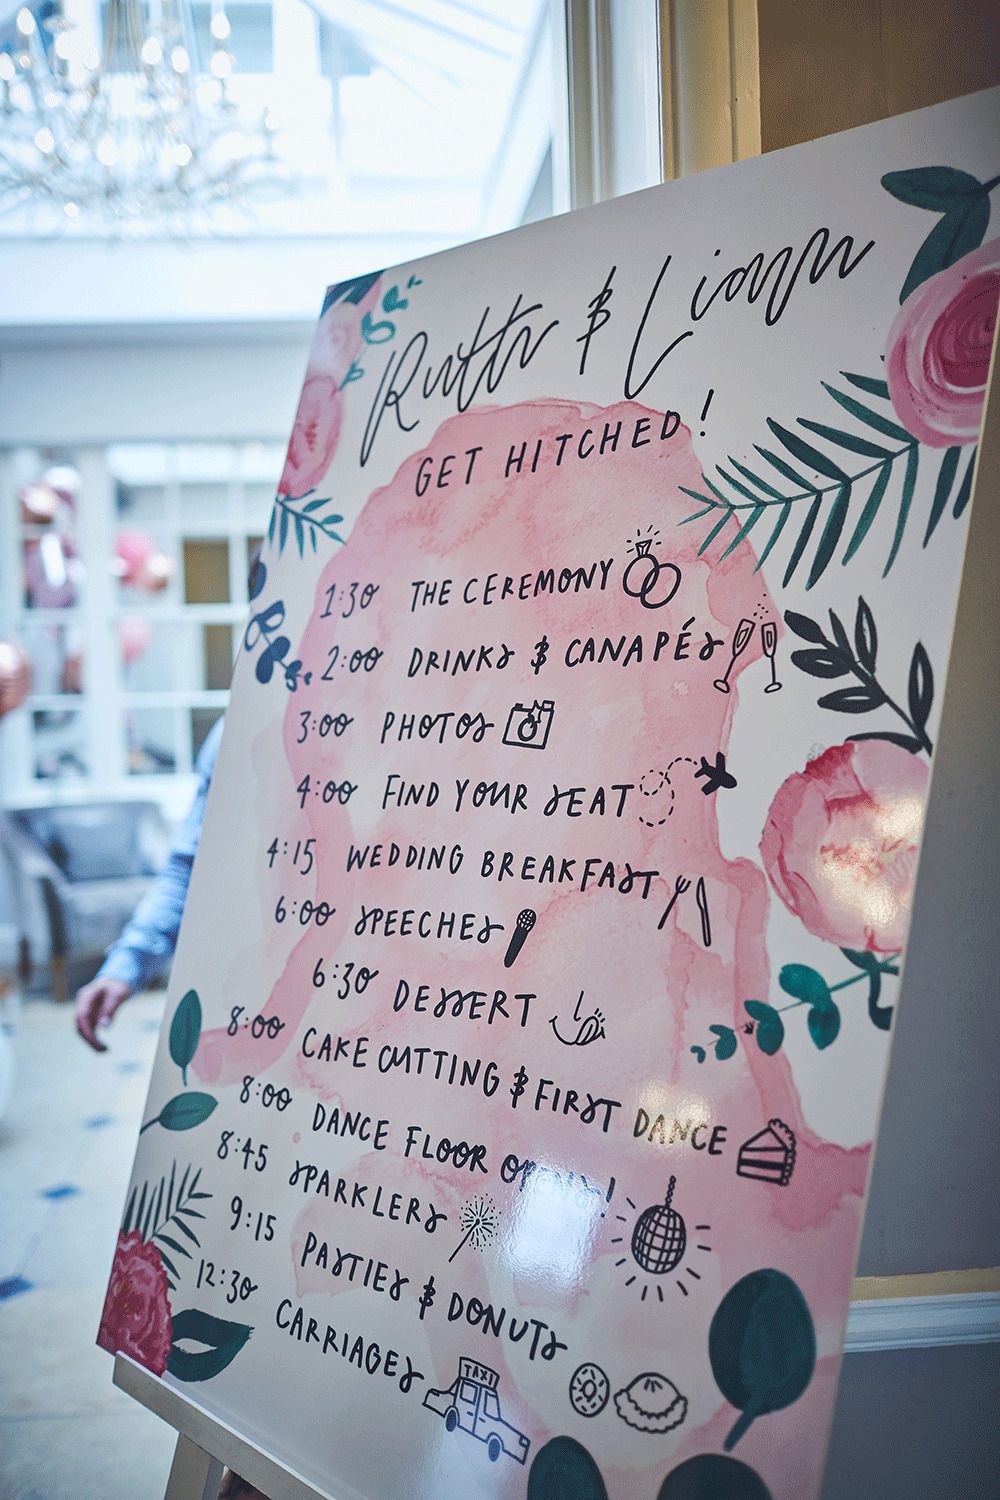 Ruth & Liam
GET HITCHED!
1:30 THE CEREMONY
2:00 DRINKS & CANAPÉS
3:00 PHOTOS
4:00 FIND YOUR SEAT
4:15 WEDDING BREAKFAST
6:00 SPEECHES
6:30 DESSERT
8:00 CAKE CUTTING & FIRST DANCE
8:00 DANCE FLOOR OPENS!
8:45 SPARKLERS
9:15 PASTIES & DONUTS
12:30 CARRIAGES
TAXI